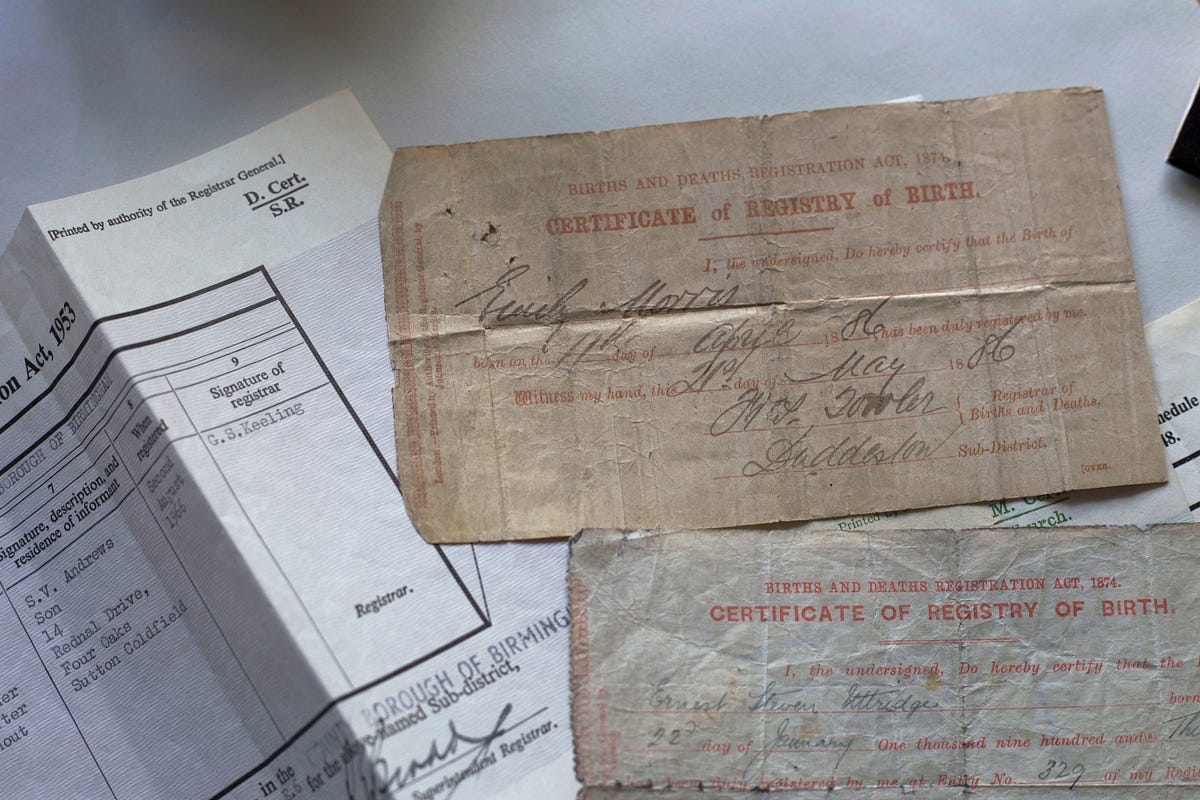 [Printed by authority of the Registrar General.]
D. Cert.
S.R.
on Act, 1953
BOROUGH OF BIRMINGHAM
7
Signature, description, and
residence of informant
S.V. Andrews
Son
14
Rednal Drive,
Four Oaks
Sutton Coldfield
8
When
registered
Second
August
1966
9
Signature of
registrar
G.S.Keeling
Registrar.
BOROUGH OF BIRMING
above-named Sub-district,
in the
for the
Superintendent Registrar.
BIRTHS AND DEATHS REGISTRATION ACT, 1874.
CERTIFICATE of REGISTRY of BIRTH.
I, the undersigned, Do hereby certify that the Birth of
Emily Morris
born on the 11th day of April 1886, has been duly registered by me.
Witness my hand, this 21st day of May 1886
Registrar of
Births and Deaths.
W. Fowler
Duddeston Sub-District.
[OVER.
hedule
48.
Printed by
M. Cert.
hurch.
BIRTHS AND DEATHS REGISTRATION ACT, 1874.
CERTIFICATE OF REGISTRY OF BIRTH.
I, the undersigned, Do hereby certify that the
Ernest Steven Uttridge born
22d day of January One thousand nine hundred and(a) Thi
been duly registered by me at Entry No. 329 of my Regis